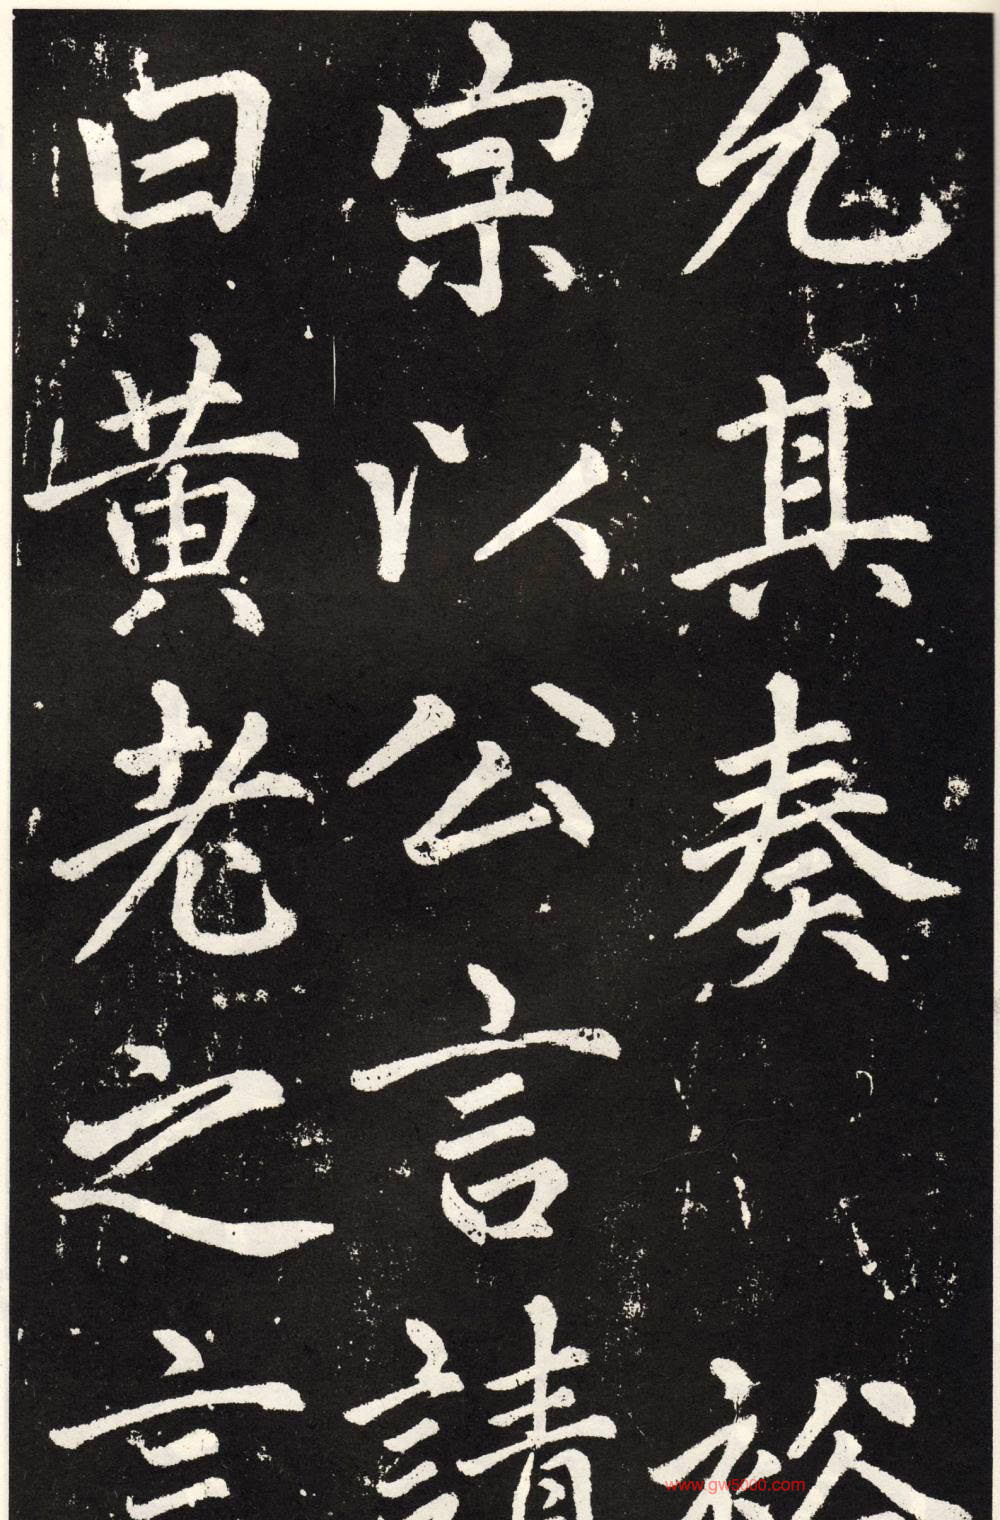 允其奏裕
宗以公言請
曰黃老之言
www.gw5000.com